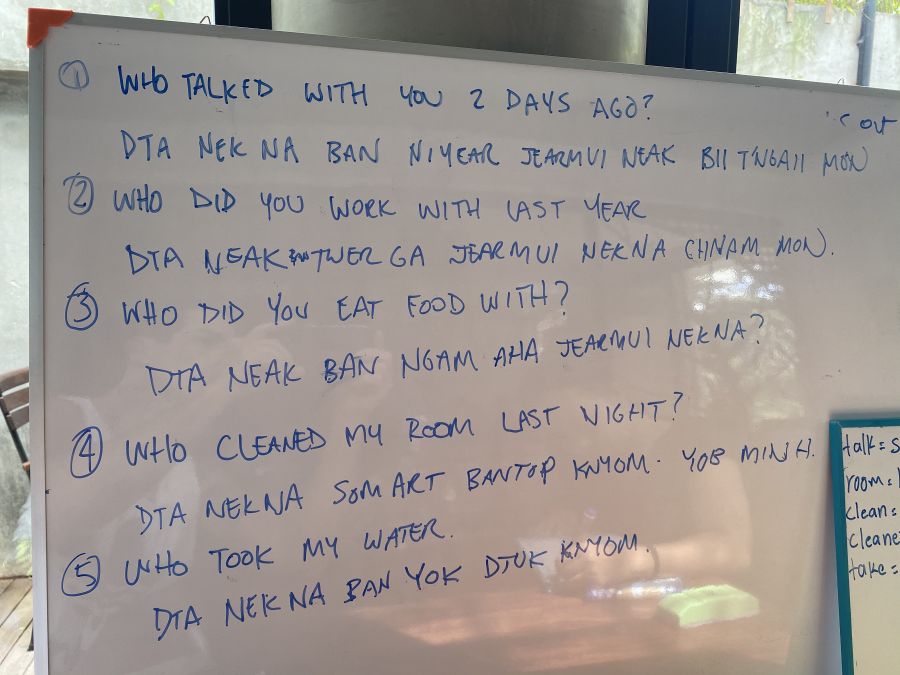 ① WHO TALKED WITH YOU 2 DAYS AGO?
OUT
DTA NEK NA BAN NIYEAR JEARMUI NEAK BII T'NGAII MON
② WHO DID YOU WORK WITH LAST YEAR
DTA NEAK TWER GA JEARMUI NEKNA CHNAM MON.
③ WHO DID YOU EAT FOOD WITH?
DTA NEAK BAN NGAM AHA JEARMUI NEKNA?
④ WHO CLEANED MY ROOM LAST NIGHT?
DTA NEKNA SOM ART BANTOP KNYOM. YOB MINIH.
⑤ WHO TOOK MY WATER.
DTA NEKNA BAN YOK DTUK KNYOM.
talk = S
room =
Clean =
Cleane
take =